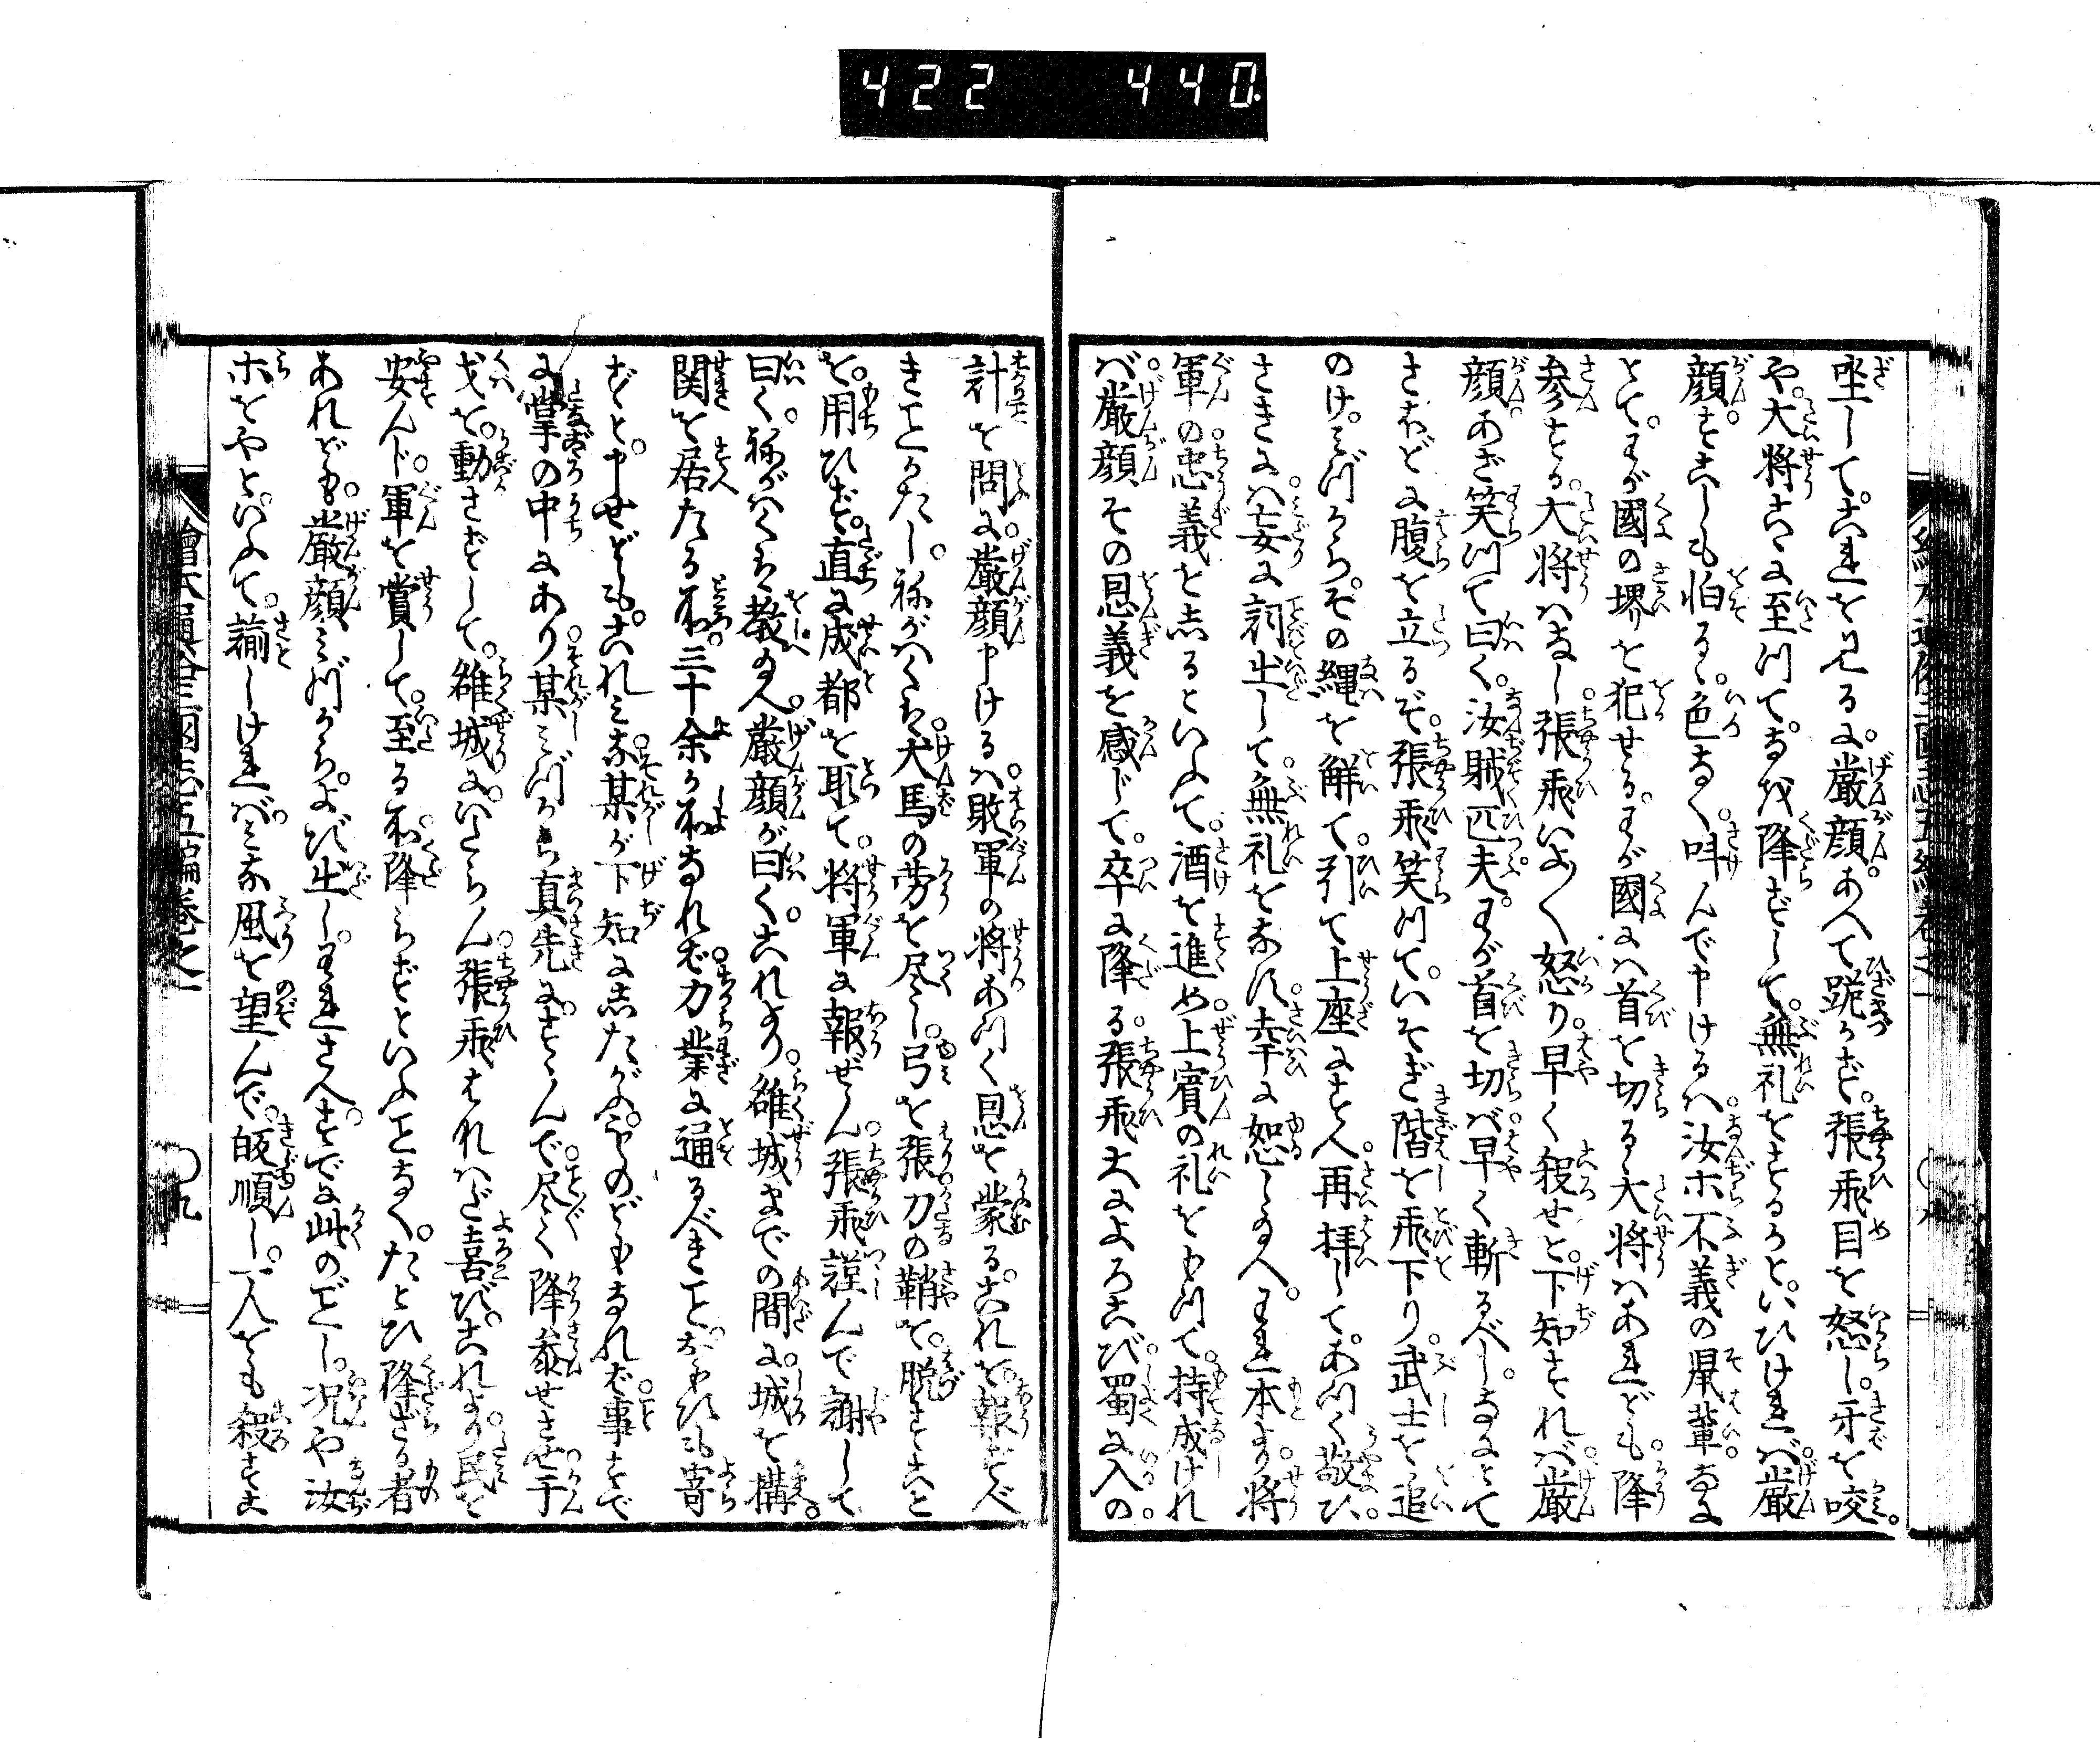 422 440
坐してこれを見るに。厳顔。あへて跪かず。張飛目を怒し。牙を咬。
や。大将こゝに至つて。なぜ降ずして。無礼をするかと。いひければ。厳
顔。すこしも怕るゝ。色なく。叫んで申けるハ。汝ホ不義の鼠輩。なに
とて。わが國の堺を犯せる。わが國にハ首を切る大将ハあれども。降
参する。大将ハなし。張飛いよ〳〵怒り。早く殺せと。下知すれバ。厳
顔。あざ笑つて曰く。汝賊匹夫。わが首を切バ早く斬るべし。なにとて
さほどに腹を立るぞ。張飛笑つて。いそぎ階を飛下り。武士を追
のけ。みづから。その縄を解て。引て上座にすへ。再拝してあつく敬ひ。
さきにハ妄に詞出して。無礼をなす。幸に恕し給へ。われ本より将
軍の忠義をしるといふて。酒を進め。上賓の礼をもつて。持成けれ
バ。厳顔その恩義を感じて。卒に降る。張飛大によろこび。蜀に入の。
計を問に。厳顔申けるハ。敗軍の将あつく恩を蒙る。これを。報ずべ
きことかたし。ねがハくは。犬馬の労を尽し。弓を張刀の鞘を。脱すこと
を。用ひず。直に成都を取て。将軍に報ぜん。張飛謹んで謝して
曰く。ねがハくは教給へ。厳顔が曰く。これより。雒城までの間に。城を構。
関を居たる所。三十余ヶ所なれば。力業に通るべきこと。おもひも寄
ずと。申せども。これみな某が下知にしたがふ。ものどもなれば。事すで
に掌の中にあり。某みづから真先に。すゝんで。尽く降参せさせ。干
戈を。動さずして。雒城に。いたらん。張飛なのハだ喜び。これより民を
安んじ。軍を賞して。至る所。降らずといふことなく。たとひ降ざる者
あれども。厳顔みづから。よび出し。われさへ。すでに此のごとし。况や汝
ホをやといふて。諭しければ。みな風を望んで。皈順し。一人をも殺すこ
繪本通俗三國志五編巻之一 〇九